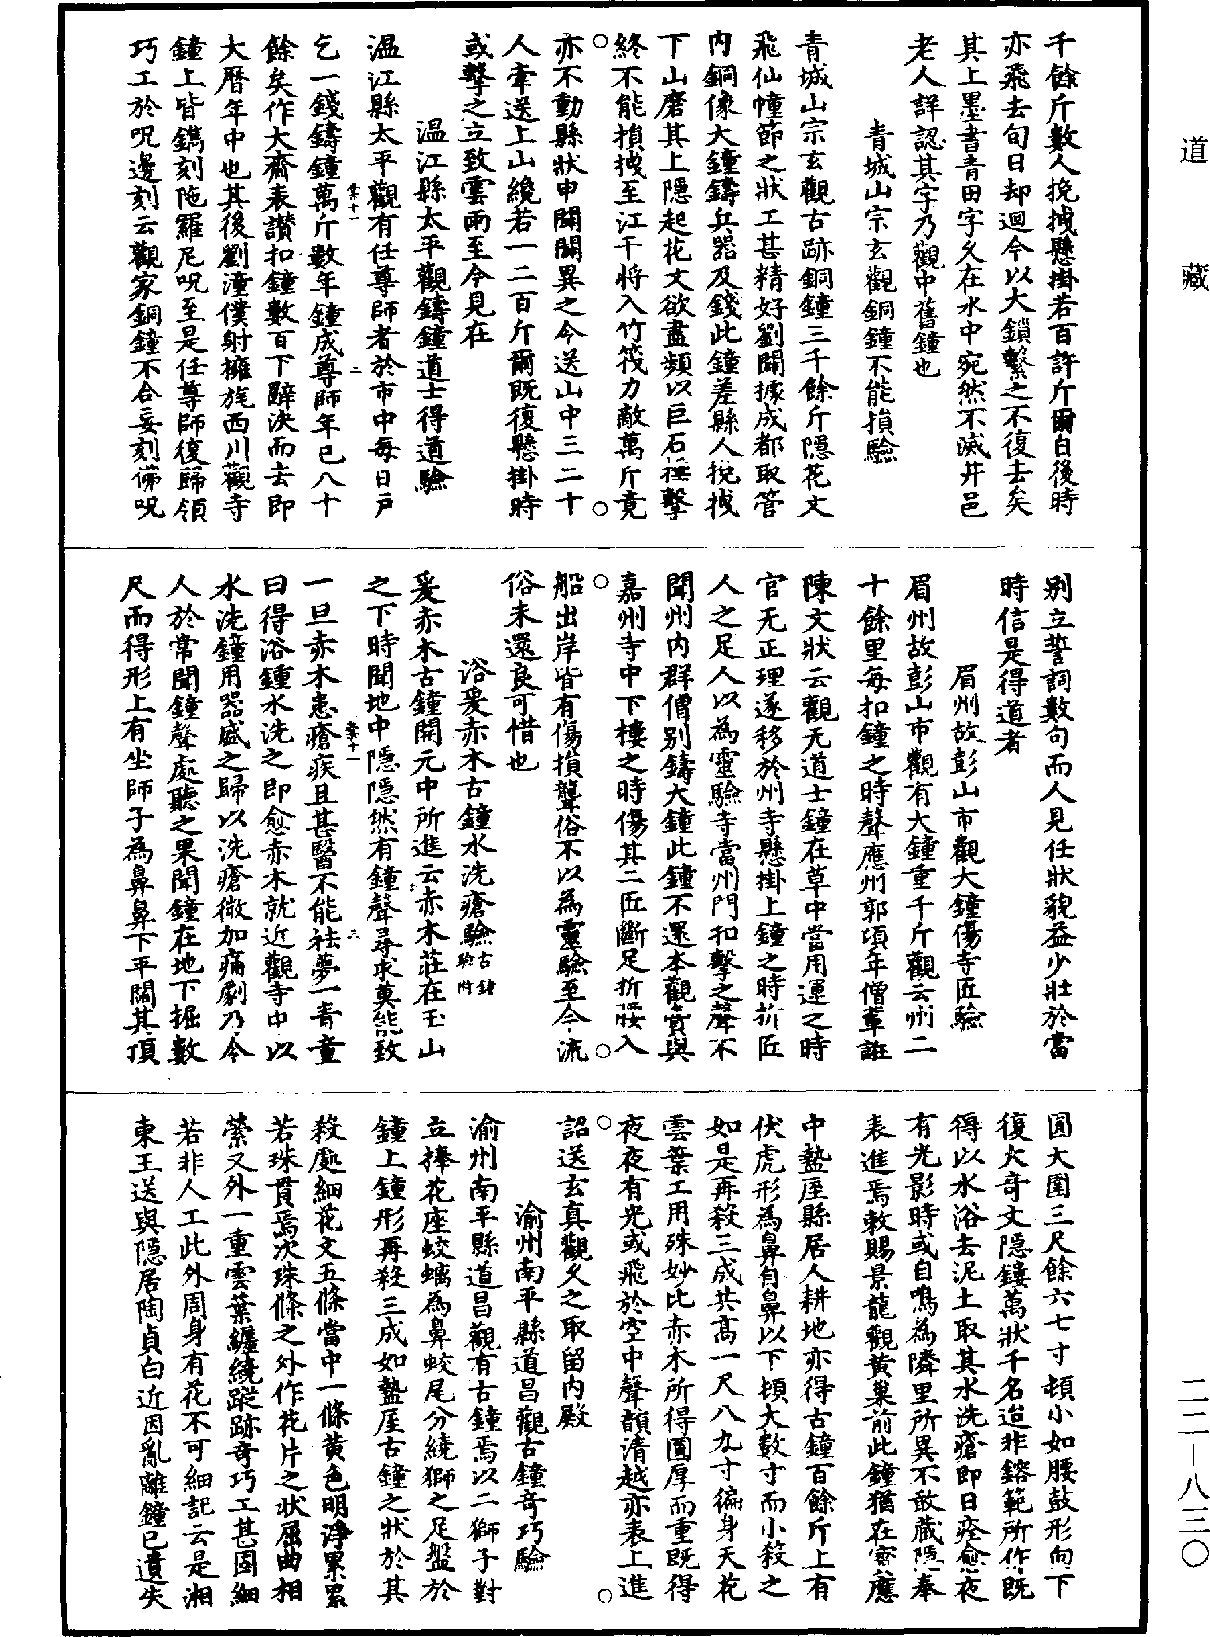 千餘斤數人挽拽懸掛若百許斤爾自後時
亦飛去旬日却迴今以大鎖繫之不復去矣
其上墨書青田字久在水中宛然不滅井邑
老人詳認其字乃觀中舊鐘也
青城山宗玄觀銅鐘不能損驗
青城山宗玄觀古跡銅鐘三千餘斤隱花文
飛仙幢節之狀工甚精好劉闢據成都取管
內銅像大鐘鑄兵器及錢此鐘差縣人挽拽
下山磨其上隱起花文欲盡頻以巨石搥擊
終不能損拽至江干將入竹筏力敵萬斤竟
亦不動縣狀申闢闢異之令送山中三二十
人牽送上山纔若一二百斤爾既復懸掛時
或擊之立致雲雨至今見在
温江縣太平觀鑄鐘道士得道驗
温江縣太平觀有任尊師者於市中每日戶
乞一錢鑄鐘萬斤數年鐘成尊師年已八十
餘矣作大齋表讚扣鐘數百下辭決而去即
大曆年中也其後劉潼僕射擁旄西川觀寺
鐘上皆鐫刻陁羅尼呪至是任尊師復歸領
巧工於呪邊刻云觀家銅鐘不合妄刻佛呪
別立誓詞數句而人見任狀貌益少壯於當
時信是得道者
眉州故彭山市觀大鐘傷寺匠驗
眉州故彭山市觀有大鐘重千斤觀云州二
十餘里每扣鐘之時聲應州郭項年僧輩誑
陳文狀云觀无道士鐘在草中當用運之時
官无正理遂移於州寺懸掛上鐘之時折匠
人之足人以為靈驗寺當州門扣擊之聲不
聞州内群僧別鑄大鐘此鐘不還本觀賣與
嘉州寺中下樓之時傷其二匠斷足折腰入
船出岸皆有傷損聾俗不以為靈驗至今流
俗未還良可惜也
浴爰赤木古鐘水洗瘡驗古鐘驗附
爰赤木古鐘開元中所進云赤木莊在玉山
之下時聞地中隱隱然有鐘聲尋求莫能致
一旦赤木患瘡疾且甚醫不能祛夢一青童
曰得浴鐘水洗之即愈赤木就近觀寺中以
水洗鐘用器盛之歸以洗瘡微加痛劇乃令
人於常聞鐘聲處聽之果聞鐘在地下掘數
尺而得形上有坐師子為鼻鼻下平闊其頂
圓大圍三尺餘六七寸頓小如腰鼓形向下
復大奇文隱鏤萬狀千名迨非鎔範所作既
得以水浴去泥土取其水洗瘡即日痊愈夜
有光影時或自鳴為隣里所異不敢藏隱奉
表進焉敕賜景龍觀黄巢前此鐘猶在寳應
中盩厔縣居人耕地亦得古鐘百餘斤上有
伏虎形為鼻自鼻以下頓大數寸而小殺之
如是再殺三成共高一尺八九寸徧身天花
雲葉工用殊妙比赤木所得圓厚而重既得
夜夜有光或飛於空中聲韻清越亦表上進
詔送玄真觀久之取留内殿
渝州南平縣道昌觀古鐘奇巧驗
渝州南平縣道昌觀有古鐘焉以二獅子對
立捧花座蛟螭為鼻蛟尾分繞獅之足盤於
鐘上鐘形再殺三成如盩厔古鐘之狀於其
殺處細花文五條當中一條黄色明淨累累
若珠貫焉次珠條之外作花片之狀屈曲相
縈又外一重雲葉纏繞蹤跡奇巧工甚圓細
若非人工此外周身有花不可細記云是湘
東王送與隱居陶貞白近因亂離鐘已遺失
道藏
二二—八三〇